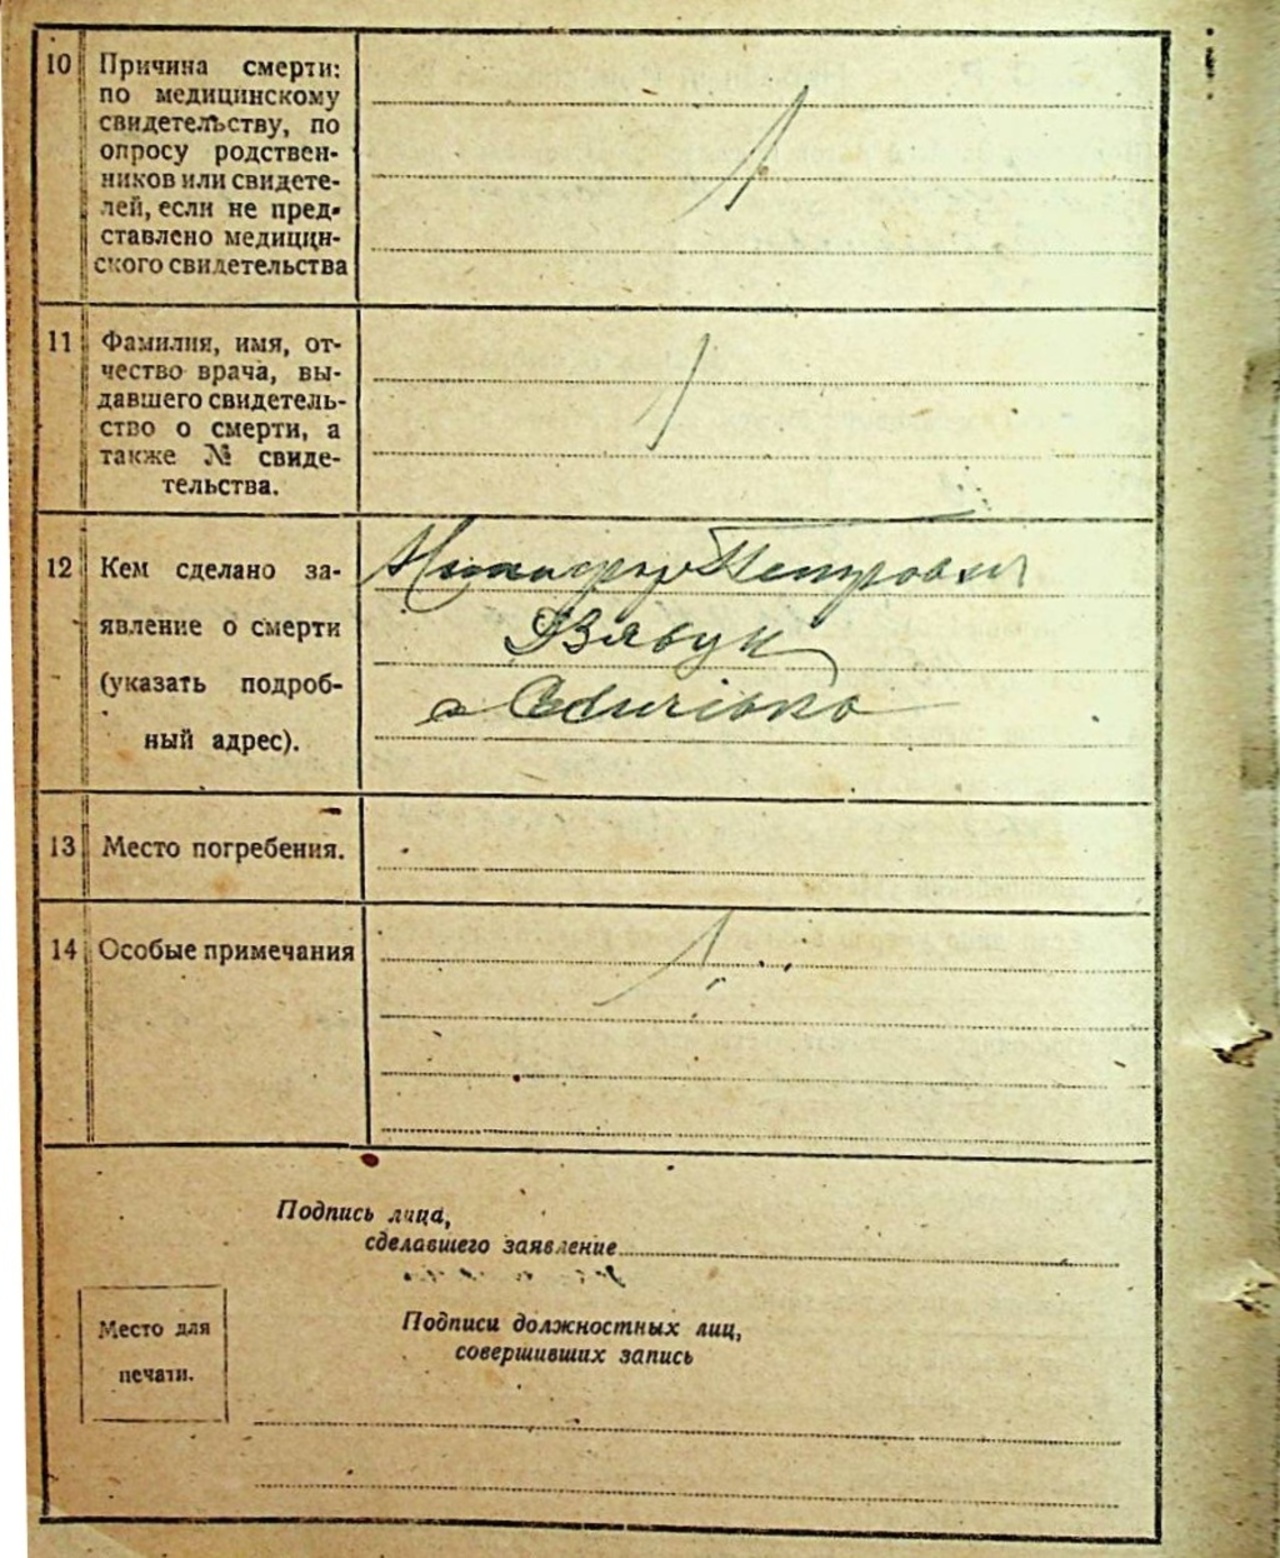 10 Причина смерти:
по медицинскому
свидетельству, по
опросу родствен-
ников или свидете-
лей, если не пред-
ставлено медицин-
ского свидетельства
11 Фамилия, имя, от-
чество врача, вы-
давшего свидетель-
ство о смерти, а
также № свиде-
тельства.
12 Кем сделано за-
явление о смерти
(указать подроб-
ный адрес).
Петрович
13 Место погребения.
14 Особые примечания
Подпись лица,
сделавшего заявление
Место для
печати.
Подписи должностных лиц,
совершивших запись